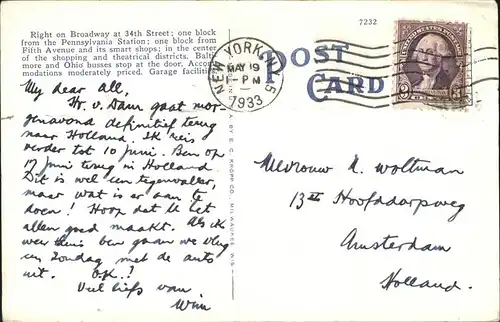 Right on Broadway at 34th Street: one block
from the Pennsylvania Station; one block from
Fifth Avenue and its smart shops; in the center
of the shopping and theatrical districts. Balti-
more and Ohio busses stop at the door. Accom-
modations moderately priced. Garage facilities.
7232
POST
CARD
NEW YORK, N.Y. 15
MAY 19
1-PM
1933
3 3
My dear all,
Hr. v. Dam gaat mor-
genavond definitief terug
naar Holland. Ik reis
verder tot 10 juni. Ben op
17 juni terug in Holland.
Dit is wel een tegenvaller,
maar wat is er aan te
doen! Hoop dat U het
allen goed maakt. Als ik
weer thuis ben gaan we vlug
een Zondag met de auto
uit. O.K.?
Veel liefs van
Wim
BY E. C. KROPP CO., MILWAUKEE, WIS.
Mevrouw N. Woltman
13 II Hoofddorpweg
Amsterdam
Holland.